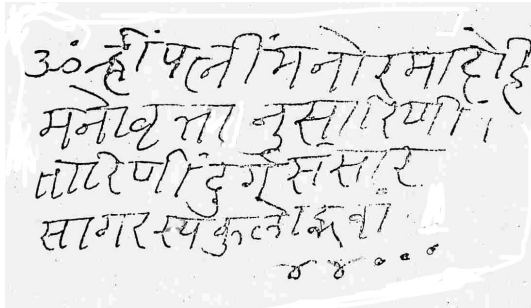 ॐ ह्रीं पत्नीं मनोरमां देहि
मनोवृत्ता नुसारिणीं ।
तारिणीं दुर्ग संसार
सागरस्य कुलोद्भवां
४४०००